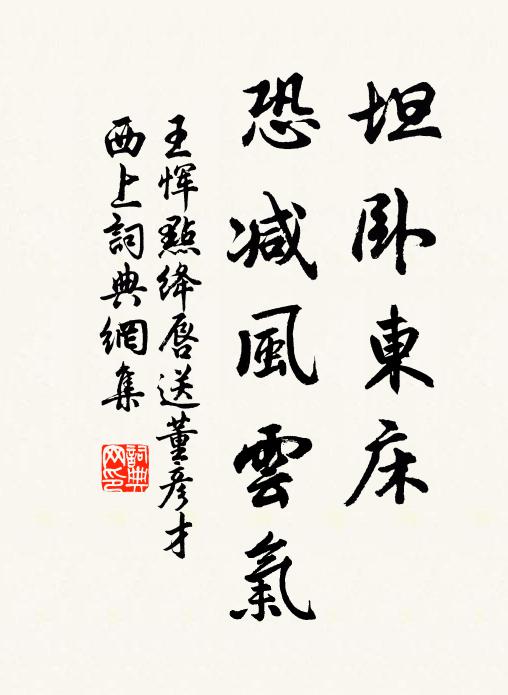 坦卧東床
恐減風雲氣
王惲點绛唇送董彦才
西上詞典網集
詞典网印